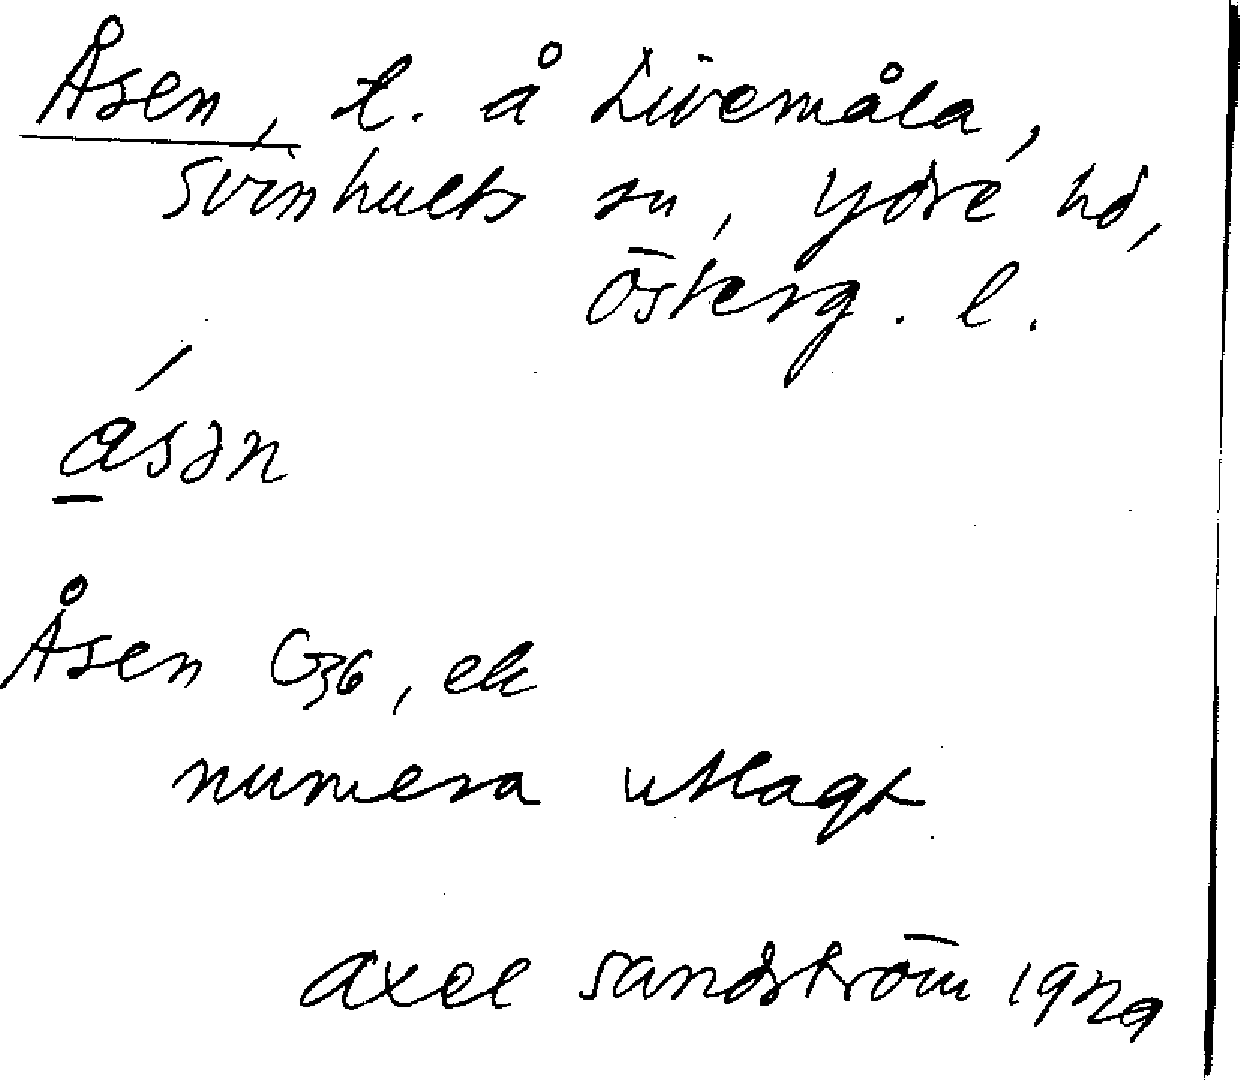 Åsen, t. å Livemåla,
Svinhults sn, Ydre hd,
Österg. l.
åsən
Åsen G36, ek
numera utlagt
Axel Sandström 1929